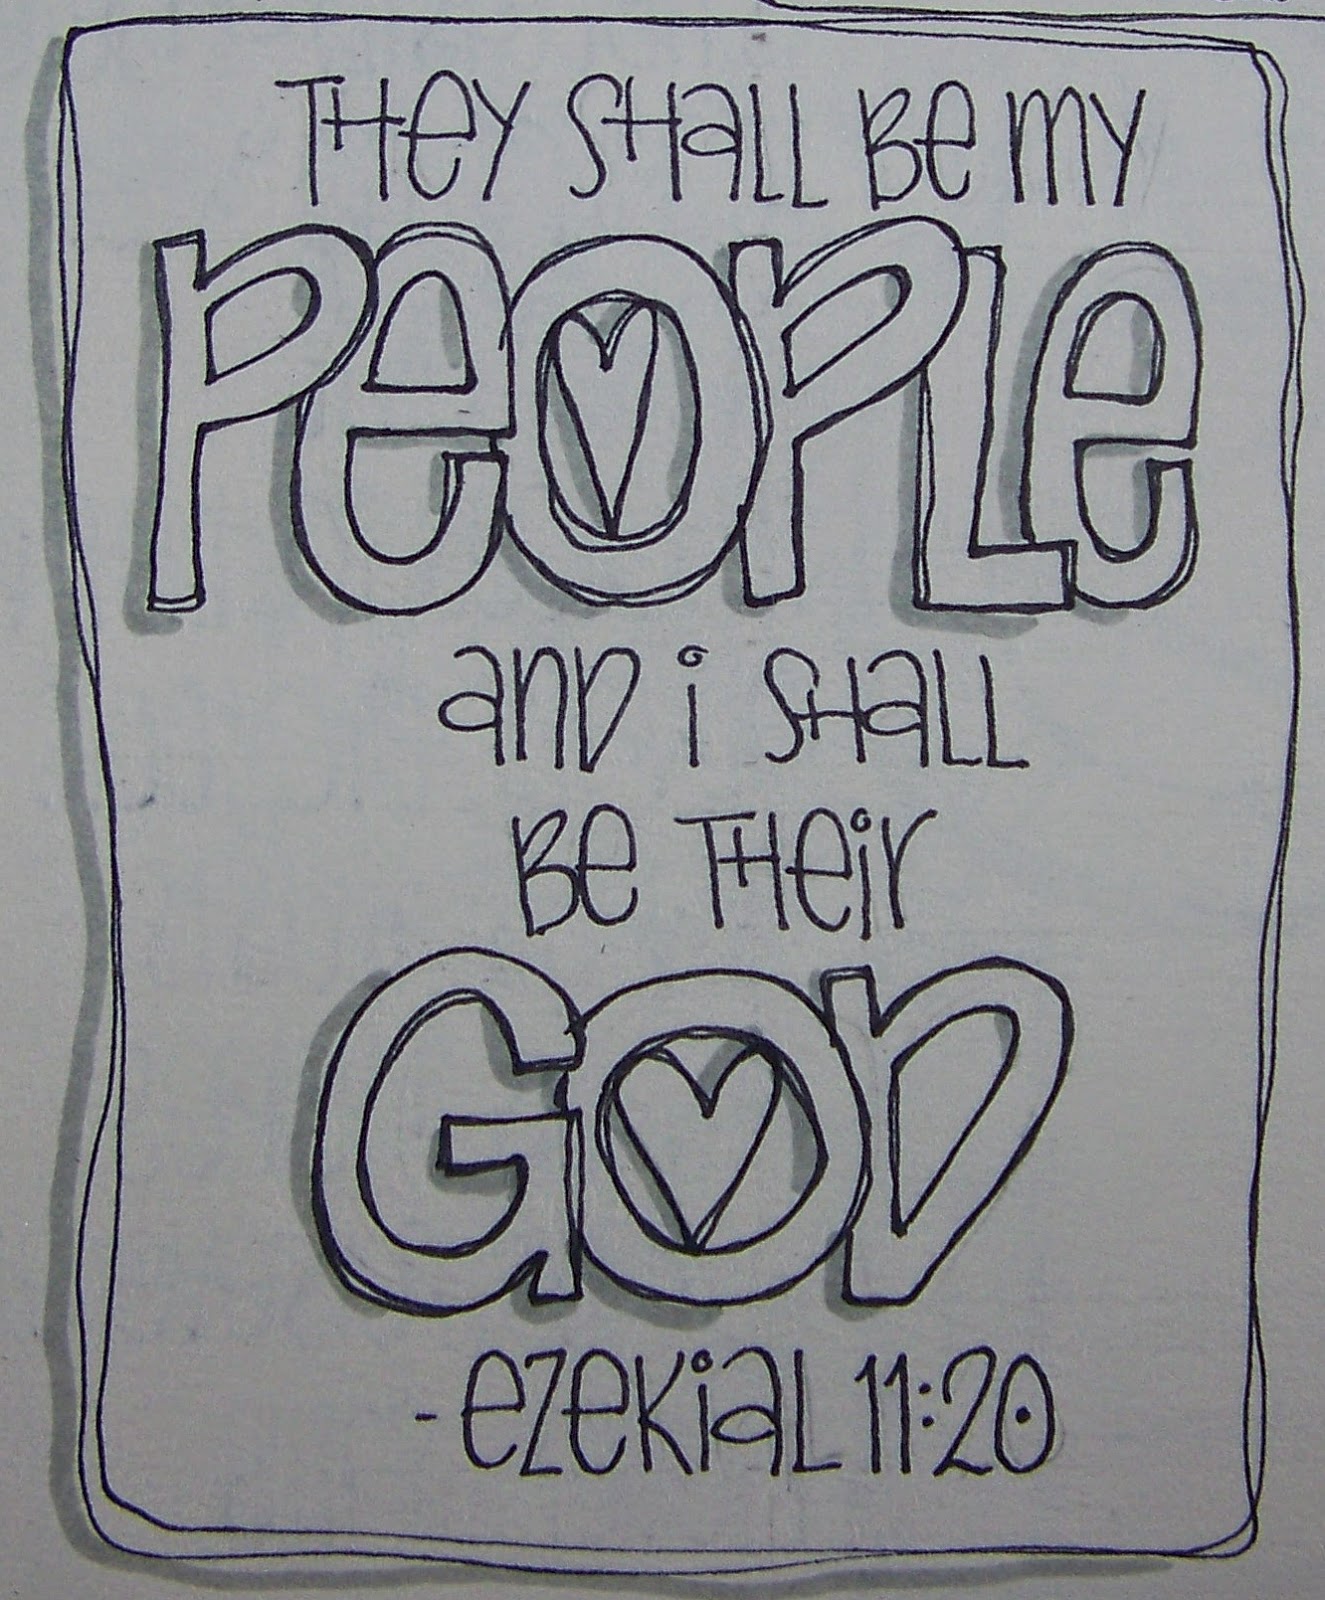 THEY SHALL BE MY
PEOPLE
AND I SHALL
BE THEIR
GOD
-EZEKIAL 11:20